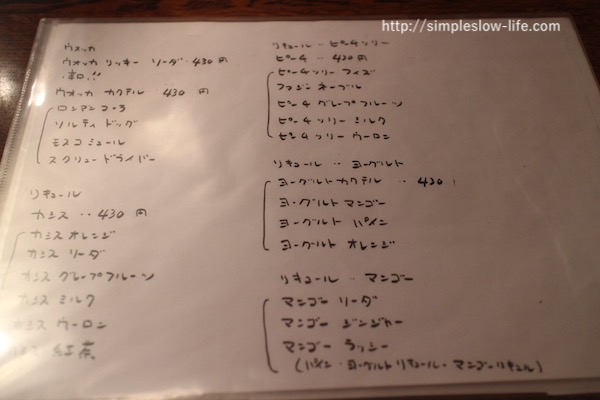 http://simpleslow-life.com
ウォッカ
ウオッカ リッキー ソーダ・430円
・辛口!!
ウオッカ カクテル 430円
ソルティ ドッグ
モスコ ミュール
スクリュー ドライバー
リキュール
カシス ‥430円
カシス オレンジ
カシス ソーダ
カシス グレープフルーツ
カシス ミルク
カシス ウーロン
カシス 紅茶
リキュール ‥ ピーチツリー
ピーチ ‥430円
ピーチツリー フィズ
ファジー ネーブル
ピーチ グレープフルーツ
ピーチツリー ミルク
ピーチツリー ウーロン
リキュール ‥ ヨーグルト
ヨーグルトカクテル ‥430
ヨーグルト マンゴー
ヨーグルト パイン
ヨーグルト オレンジ
リキュール ‥ マンゴー
マンゴー ソーダ
マンゴー ジンジャー
マンゴー ラッシー
(パイン・ヨーグルトリキュール・マンゴーリキュル)